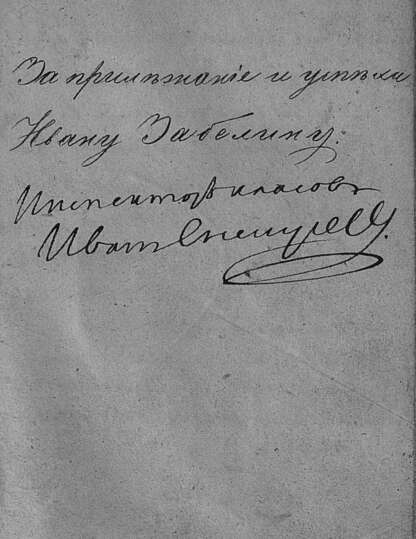 За прилѣжаніе и успѣхи
Ивану Забелину.
Инспекторъ классовъ
Иванъ